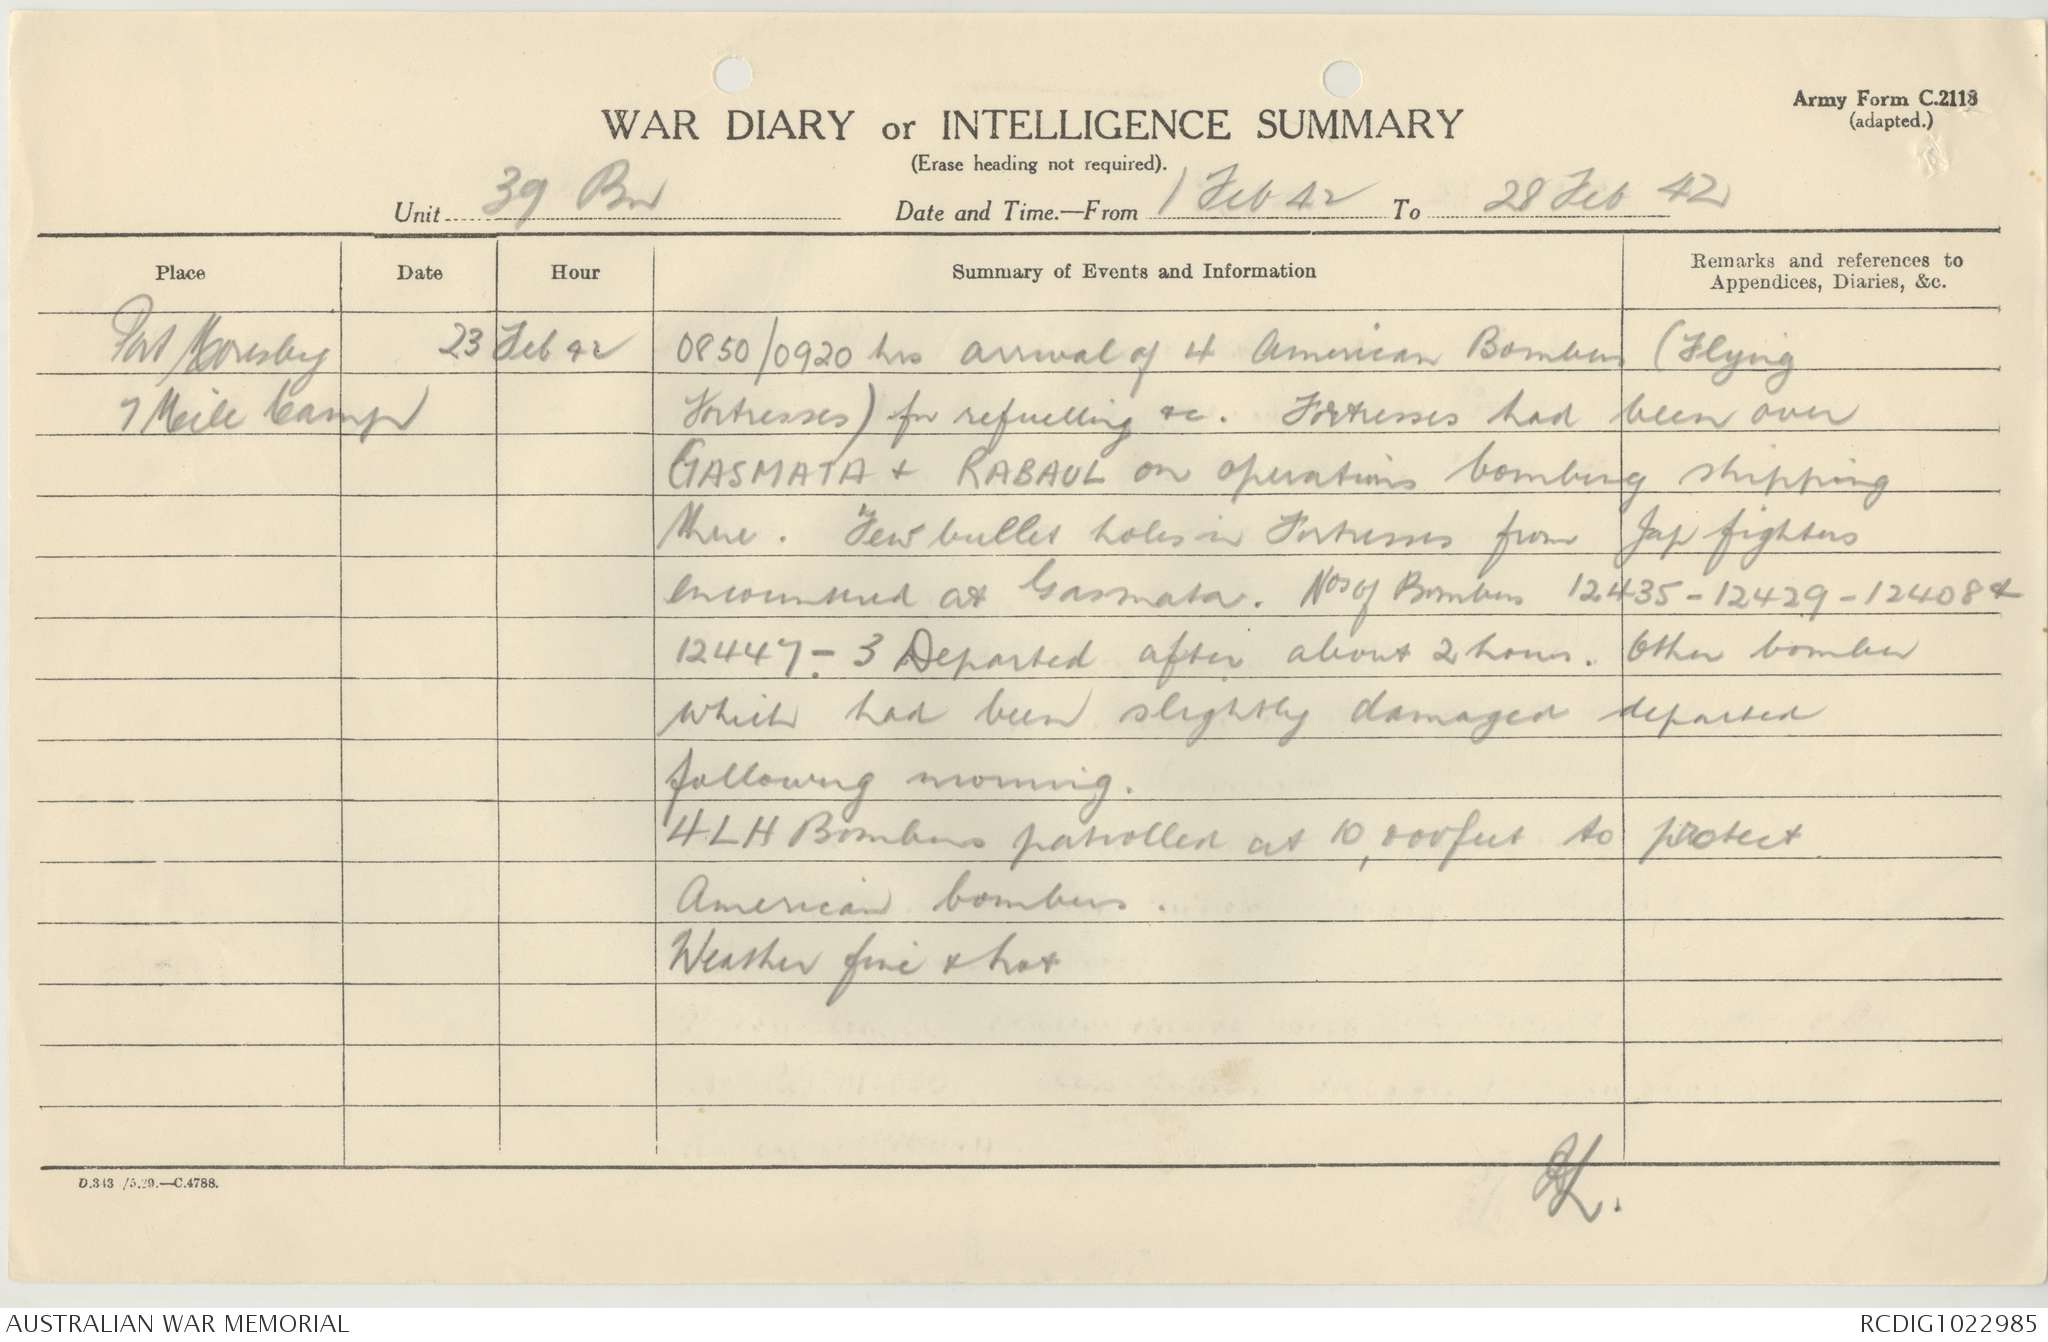 Army Form C.2118
(adapted.)
WAR DIARY or INTELLIGENCE SUMMARY
(Erase heading not required).
Unit 39 Bn Date and Time.—From 1 Feb 42 To 28 Feb 42
Place Date Hour Summary of Events and Information Remarks and references to Appendices, Diaries, &c.
Port Moresby 23 Feb 42 0850/0920 hrs arrival of 4 American Bombers (Flying
7 Mile Camp Fortresses) for refuelling &c. Fortresses had been over
GASMATA & RABAUL on operations bombing shipping
there. Few bullet holes in Fortresses from Jap fighters
encountered at Gasmata. Nos of Bombers 12435-12429-12408 &
12447- 3 Departed after about 2 hours. Other bomber
which had been slightly damaged departed
following morning.
4 LH Bombers patrolled at 10,000 feet to protect
American bombers.
Weather fine & hot
D.343 /5.29.—C.4788.
AUSTRALIAN WAR MEMORIAL RCDIG1022985